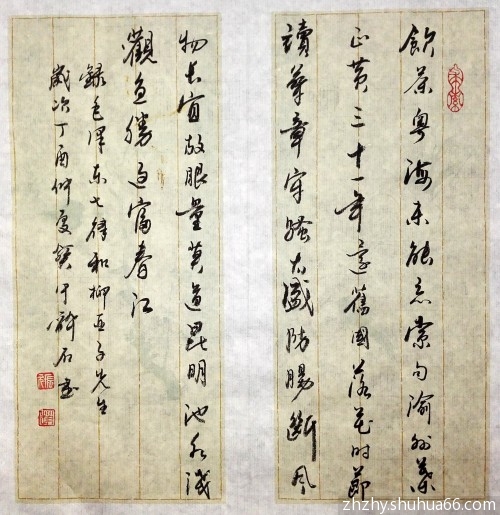 飲茶粤海未能忘索句渝州葉
正黄三十一年還舊國落花時節
讀華章牢騷太盛防腸斷風
物长宜放眼量莫道昆明池水淺
觀魚勝過富春江
録毛澤东七律和柳亚子先生
歲次丁酉仲夏 石書
zhzhy.shuhua66.com